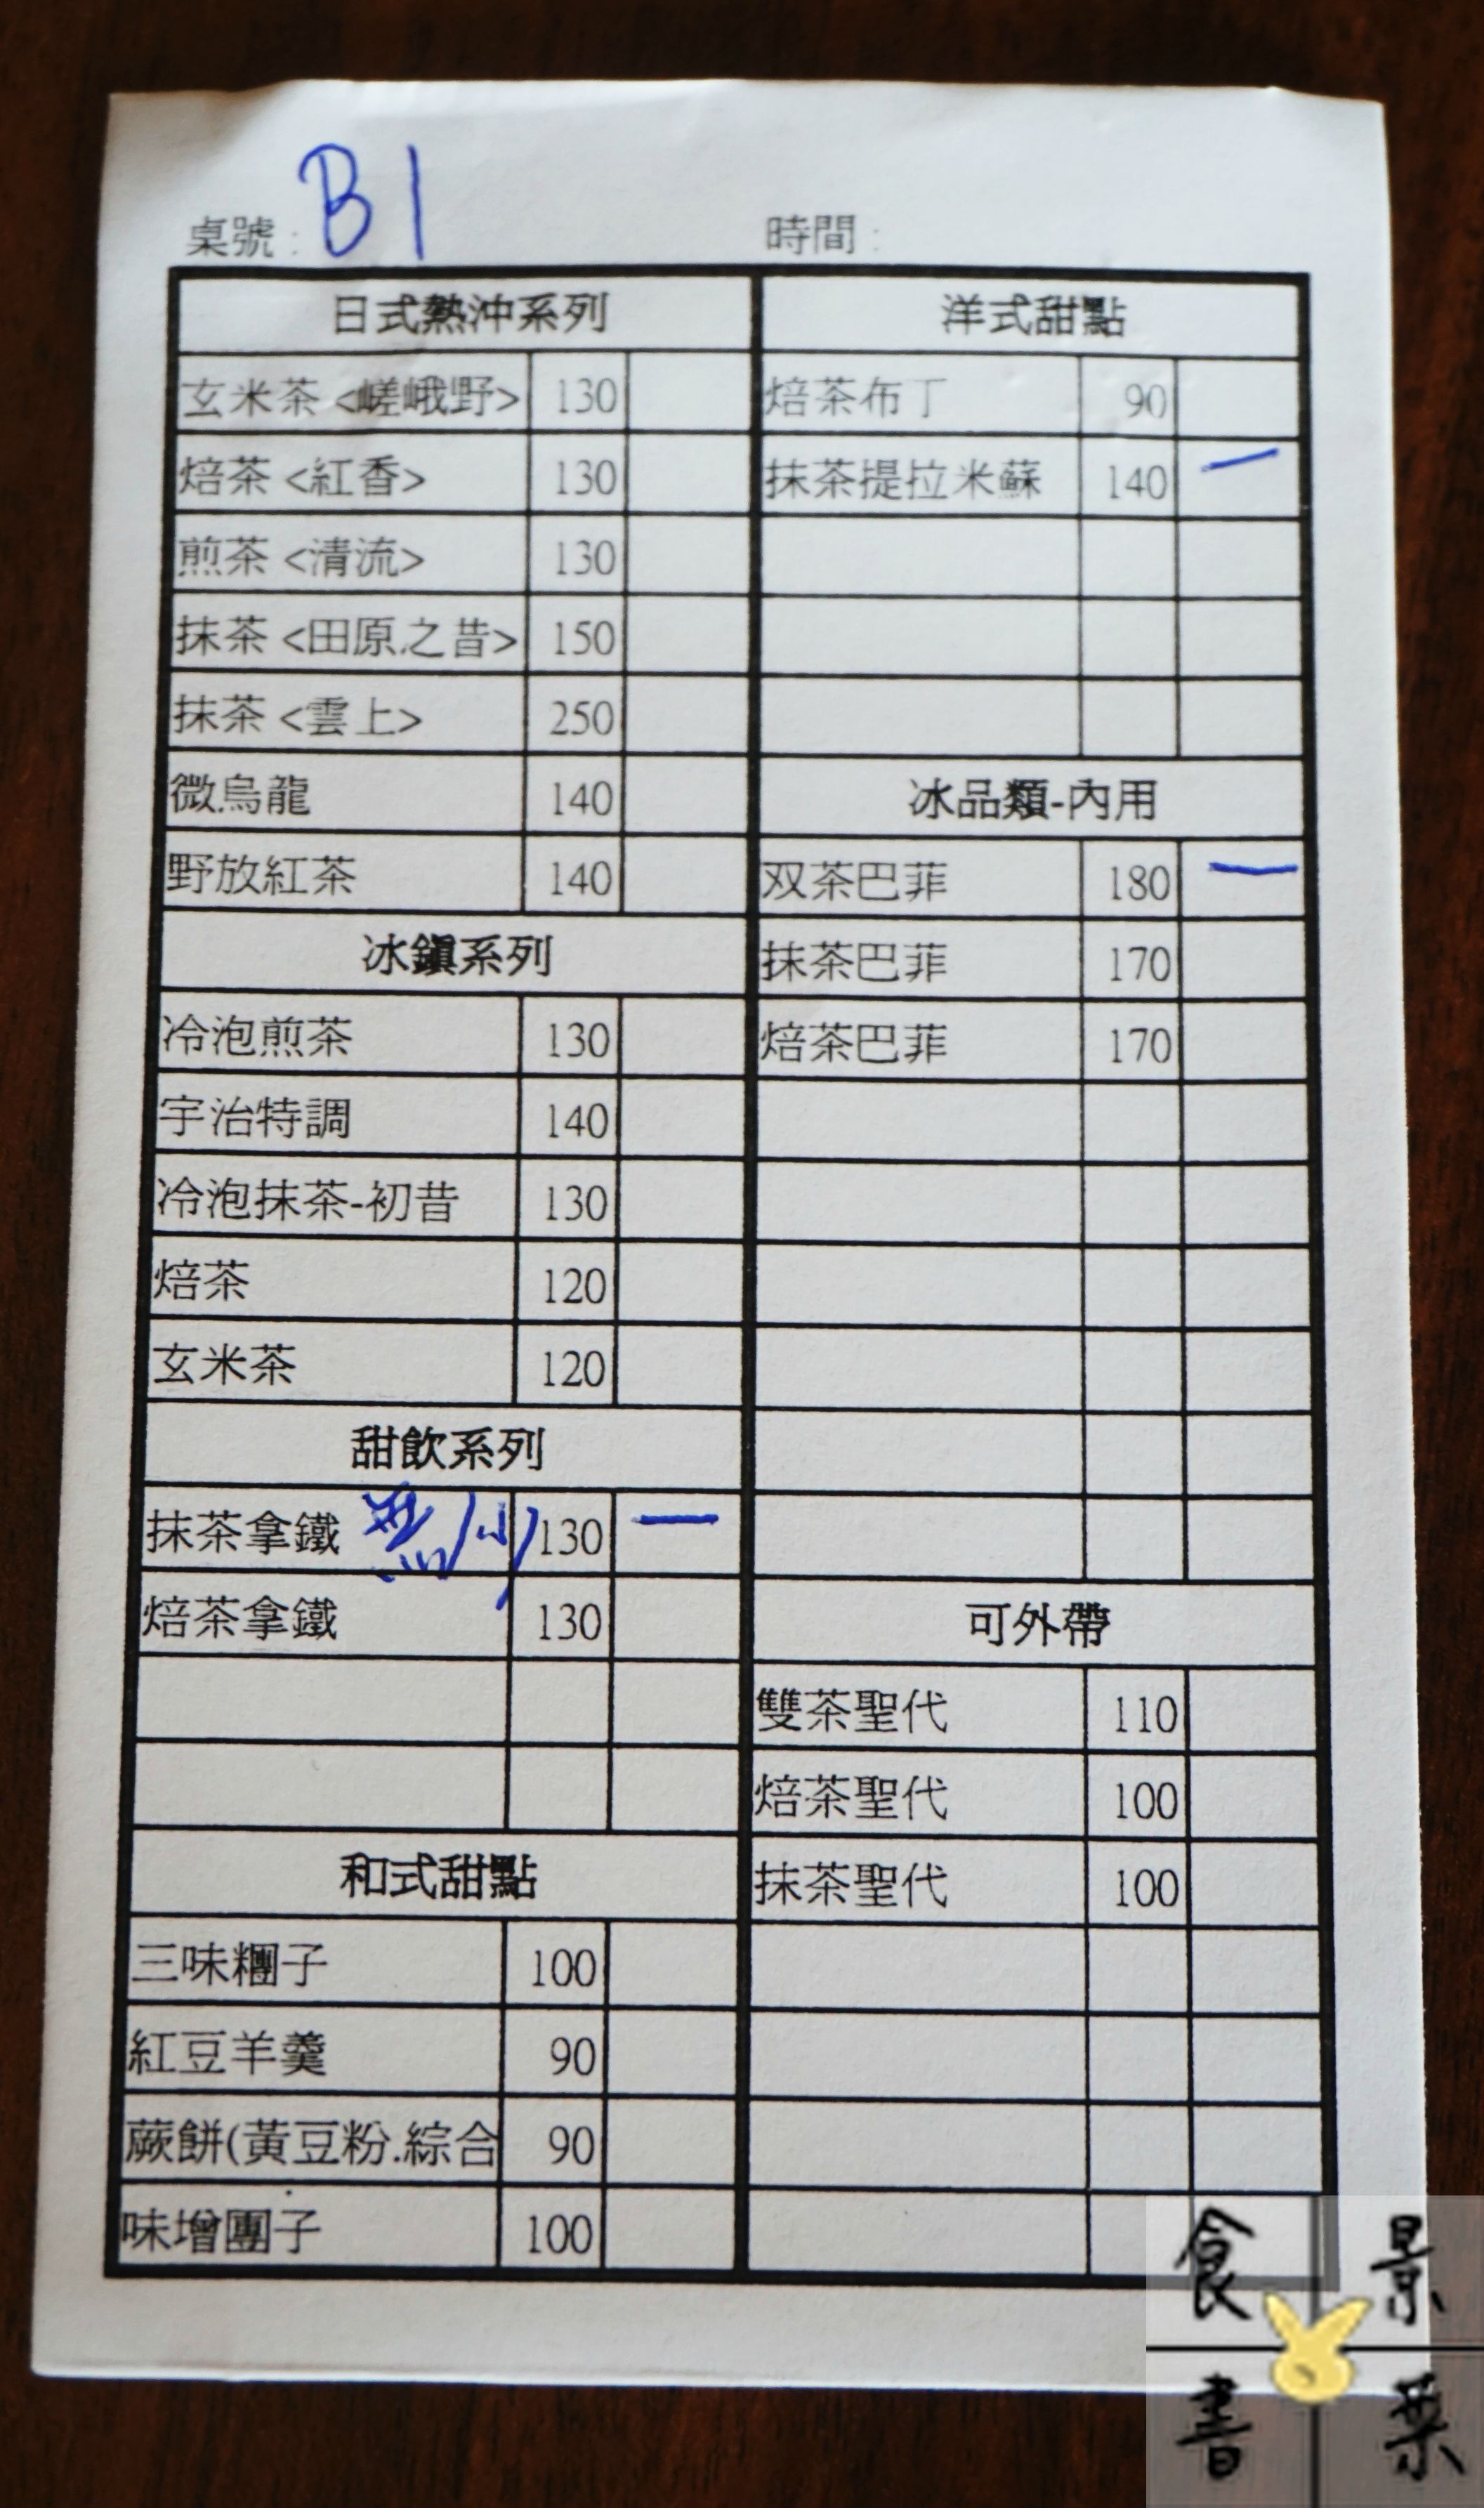 桌號: B1
時間:
日式熱沖系列
玄米茶 <嵯峨野> 130
焙茶 <紅香> 130
煎茶 <清流> 130
抹茶 <田原.之昔> 150
抹茶 <雲上> 250
微烏龍 140
野放紅茶 140
冰鎮系列
冷泡煎茶 130
宇治特調 140
冷泡抹茶-初昔 130
焙茶 120
玄米茶 120
甜飲系列
抹茶拿鐵 130 一
焙茶拿鐵 130
和式甜點
三味糰子 100
紅豆羊羹 90
蕨餅(黃豆粉.綜合 90
味增團子 100
洋式甜點
焙茶布丁 90
抹茶提拉米蘇 140 一
冰品類-內用
双茶巴菲 180 一
抹茶巴菲 170
焙茶巴菲 170
可外帶
雙茶聖代 110
焙茶聖代 100
抹茶聖代 100
食景
書葉